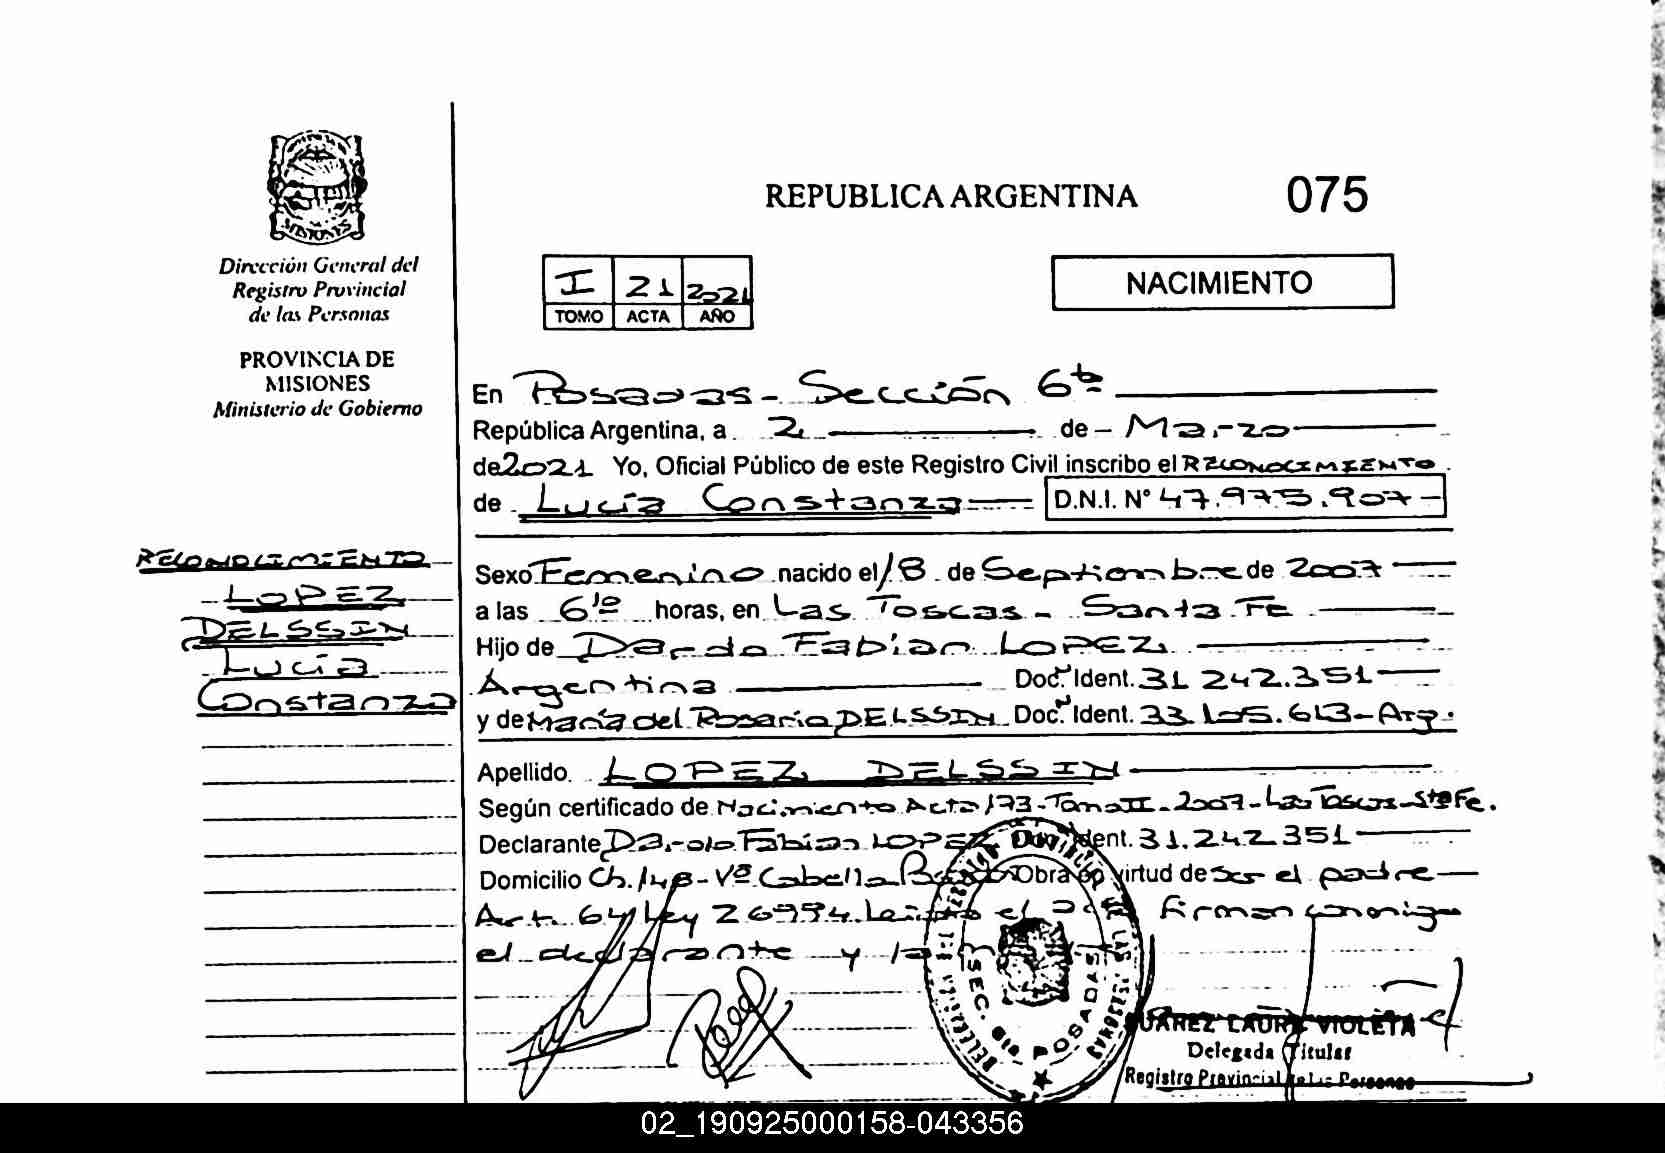 REPUBLICA ARGENTINA
075
MISIONES
Dirección General del
Registro Provincial
de las Personas
PROVINCIA DE
MISIONES
Ministerio de Gobierno
I 21 2021
TOMO ACTA AÑO
NACIMIENTO
En Posadas - Sección 6ta
República Argentina, a 2 de Marzo
de 2021 Yo, Oficial Público de este Registro Civil inscribo el RECONOCIMIENTO
de Lucía Constanza D.N.I. N° 47.975.907
Sexo Femenino nacido el 18 de Septiembre de 2007
a las 6 10 horas, en Las Toscas - Santa Fe
Hijo de Dardo Fabian LOPEZ
Argentina Doc. Ident. 31 242.351
y de María del Rosario DELSSIN Doc. Ident. 33.105.613 - Arg.
RECONOCIMIENTO
LOPEZ
DELSSIN
Lucía
Constanza
Apellido LOPEZ DELSSIN
Según certificado de Nacimiento Acta 173 - Tomo II - 2007 - Las Toscas - Sta Fe.
Declarante Dardo Fabian LOPEZ Doc. Ident. 31.242.351
Domicilio Ch. 148 - Vª Cabello Obra en virtud de ser el padre
Art. 64 Ley 26994. Leída el firman conmigo
el declarante y la
SEC. 6ta. POSADAS
SUAREZ LAURA VIOLETA
Delegada Titular
Registro Provincial de las Personas
02_190925000158-043356